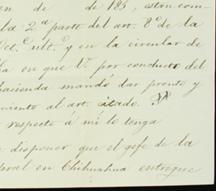 en de de 185, están com
la 2.ª parte del art. 8.º de la
últ.º y en la circular de
en que V. por conducto del
hacienda mandó dar pronto y
miento al art. citado
respecto á mi lo tenga
disponer que el gefe de la
oral en Chihuahua entregue